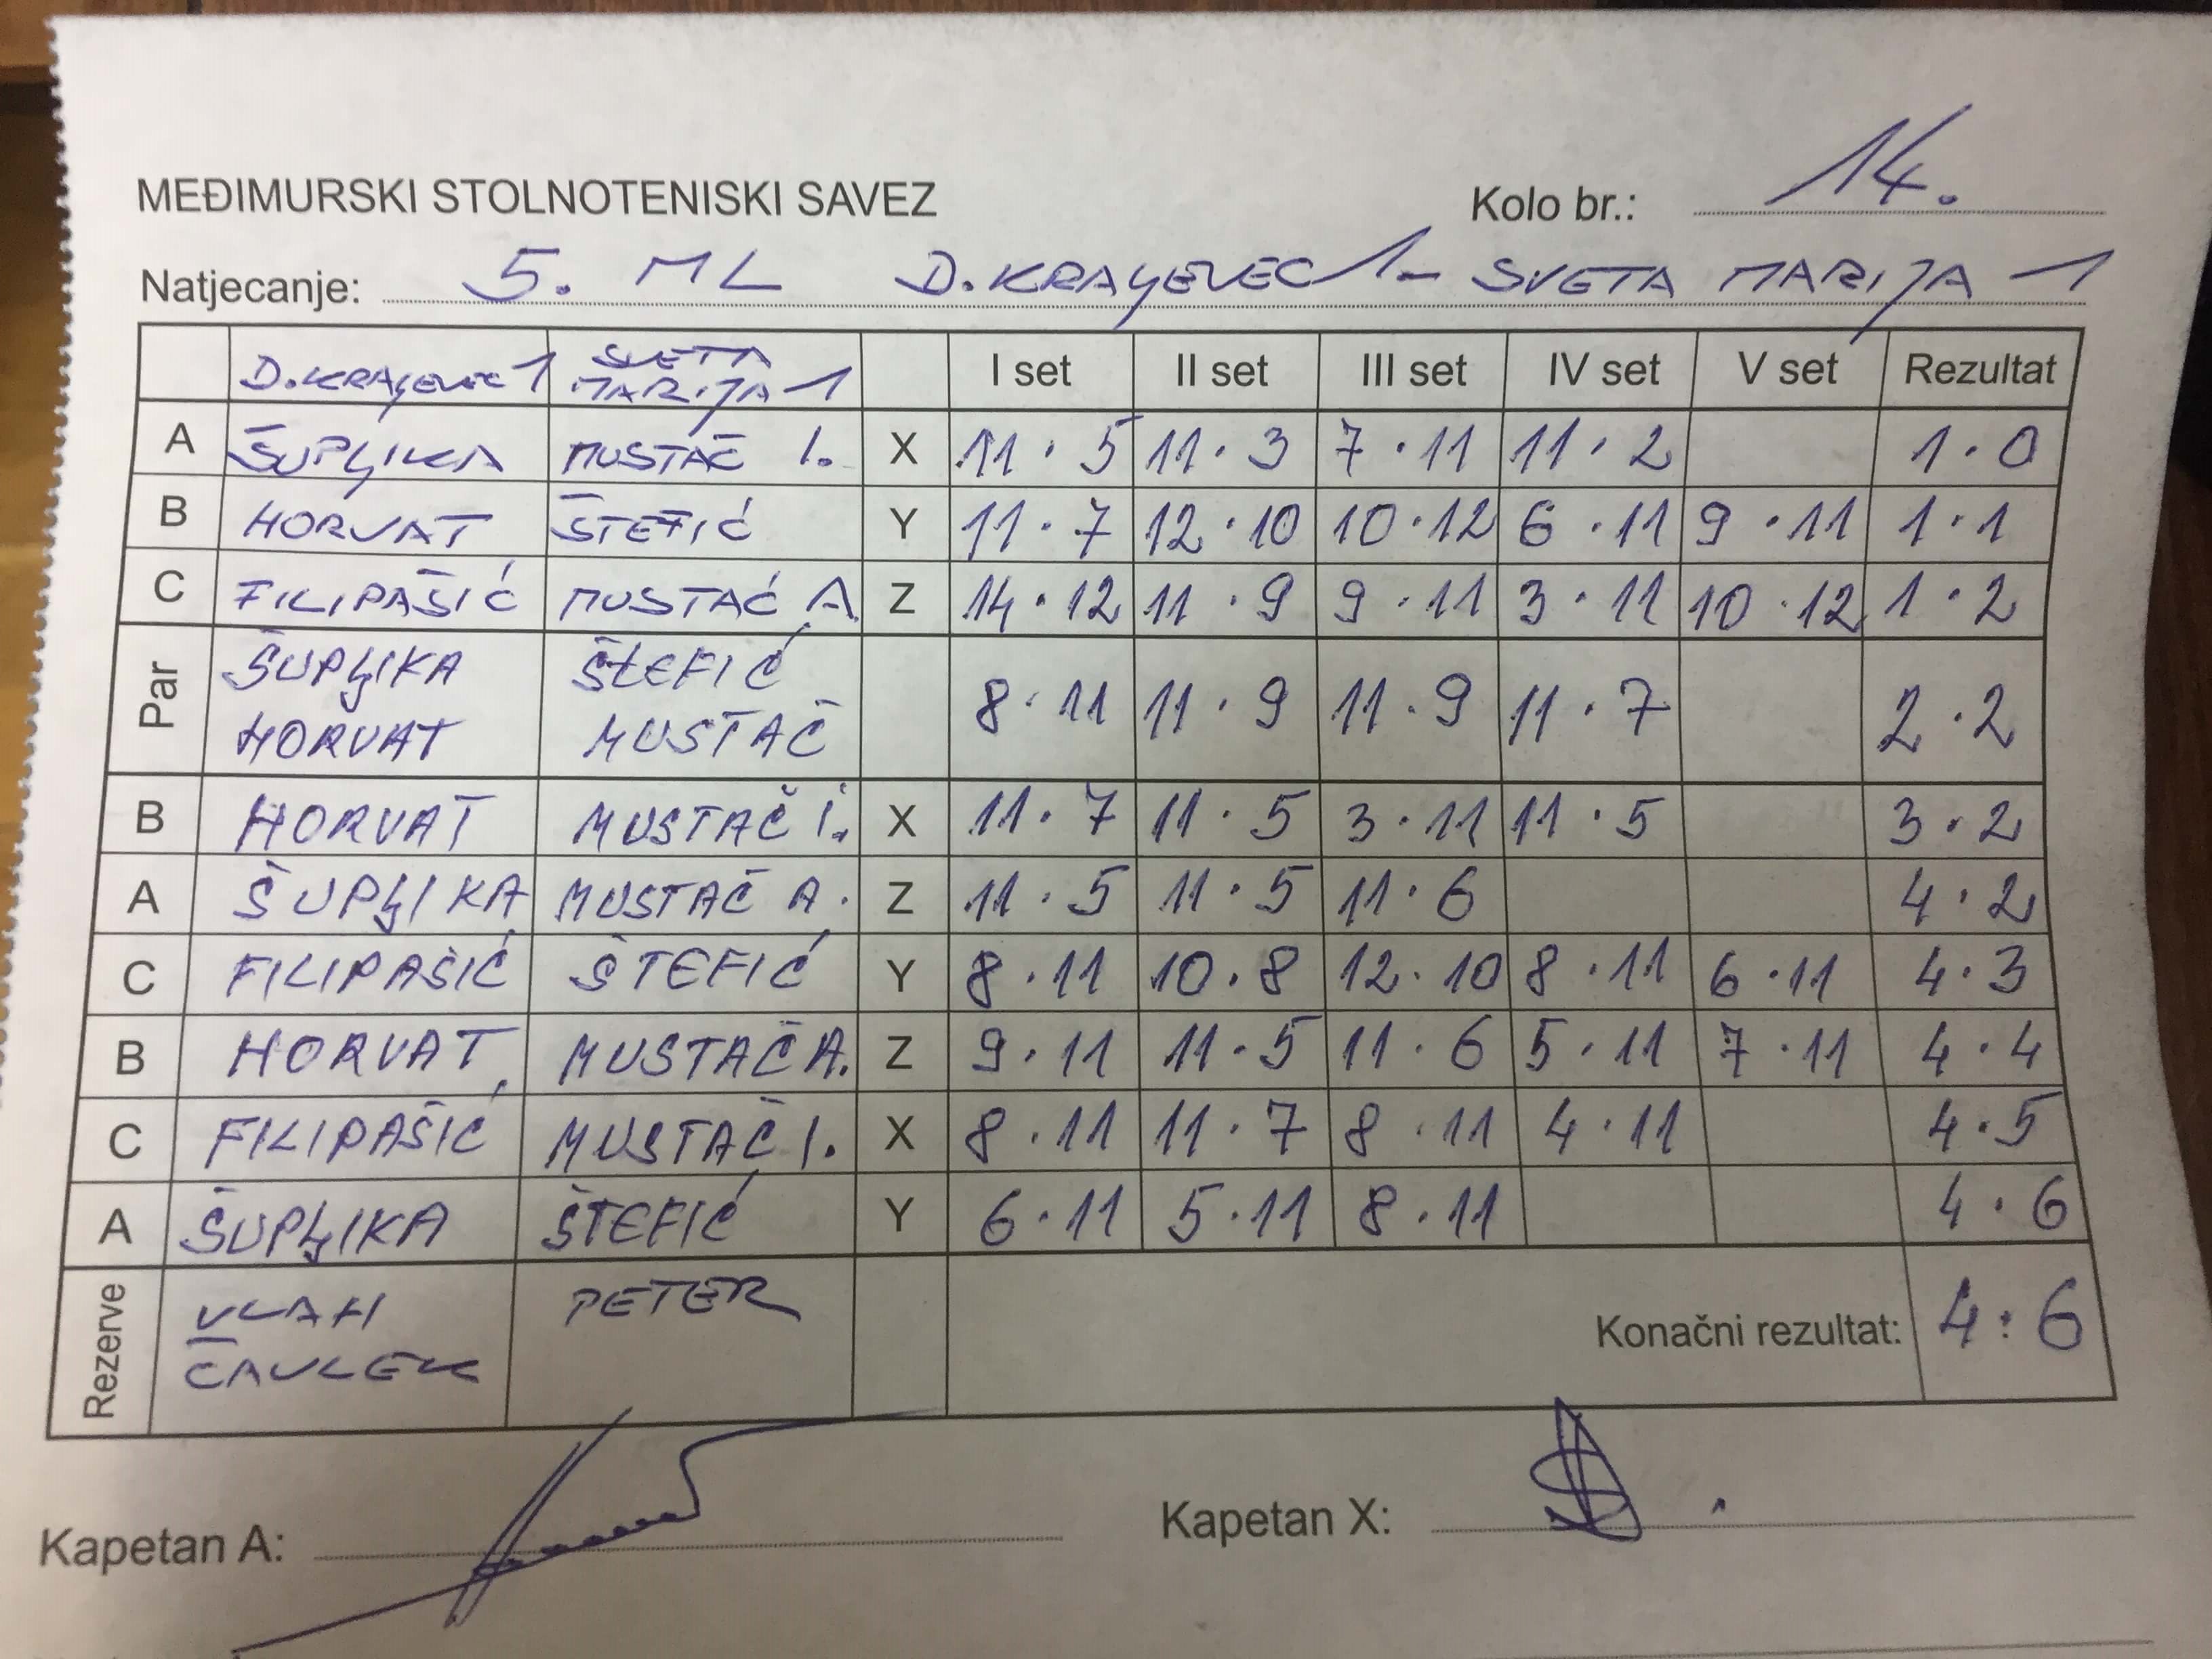 MEĐIMURSKI STOLNOTENISKI SAVEZ
Kolo br.: 14.
Natjecanje: 5. ML D. KRALJEVEC 1 - SVETA MARIJA 1
D. KRALJEVEC 1 SVETA MARIJA 1 I set II set III set IV set V set Rezultat
A ŠUPLJIKA MUSTAČ I. X 11 · 5 11 · 3 7 · 11 11 · 2 1 · 0
B HORVAT ŠTEFIĆ Y 11 · 7 12 · 10 10 · 12 6 · 11 9 · 11 1 · 1
C FILIPAŠIĆ MUSTAČ A. Z 14 · 12 11 · 9 9 · 11 3 · 11 10 · 12 1 · 2
Par ŠUPLJIKA HORVAT ŠTEFIĆ MUSTAČ 8 · 11 11 · 9 11 · 9 11 · 7 2 · 2
B HORVAT MUSTAČ I. X 11 · 7 11 · 5 3 · 11 11 · 5 3 · 2
A ŠUPLJIKA MUSTAČ A. Z 11 · 5 11 · 5 11 · 6 4 · 2
C FILIPAŠIĆ ŠTEFIĆ Y 8 · 11 10 · 8 12 · 10 8 · 11 6 · 11 4 · 3
B HORVAT MUSTAČ A. Z 9 · 11 11 · 5 11 · 6 5 · 11 7 · 11 4 · 4
C FILIPAŠIĆ MUSTAČ I. X 8 · 11 11 · 7 8 · 11 4 · 11 4 · 5
A ŠUPLJIKA ŠTEFIĆ Y 6 · 11 5 · 11 8 · 11 4 · 6
Rezerve VLAH ČAVLEK PETER Konačni rezultat: 4 : 6
Kapetan A: Kapetan X: